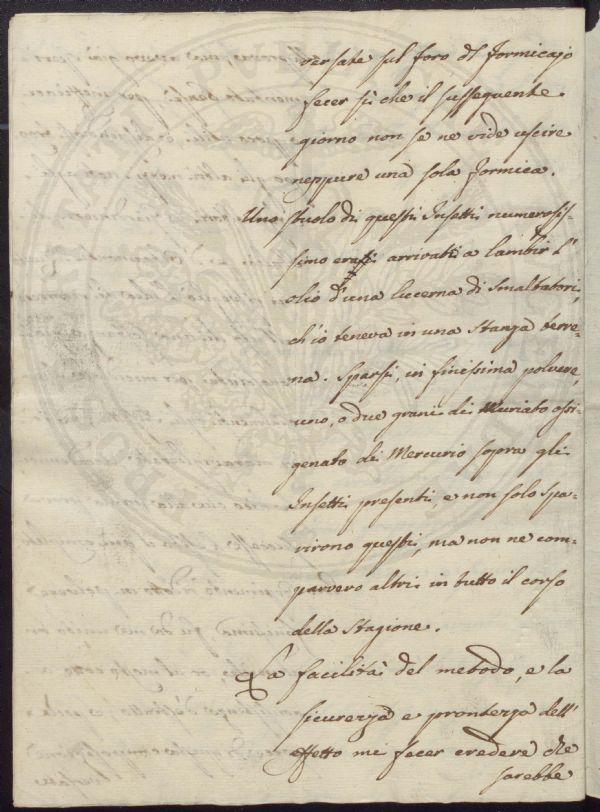 versate sul foro del formicajo
fecer sì che il susseguente
giorno non se ne vide uscire
neppure una sola formica.
Uno stuolo di questi Insetti numerosis-
simo erasi arrivato a lambir l'
olio d'una lucerna di Smaltatori,
ch'io teneva in una stanza terre-
na. Sparsi, in finissima polvere,
uno, o due grani di Muriato ossi-
genato di Mercurio sopra gli
Insetti presenti, e non solo spa-
rirono questi, ma non ne com-
parvero altri in tutto il corso
della Stagione.
La facilità del metodo, e la
sicurezza e prontezza dell'
effetto mi fecer credere che
sarebbe